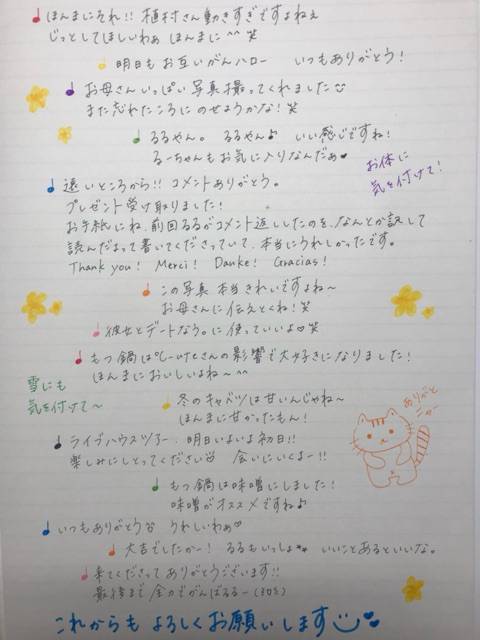 ほんまにそれ!! 植村さん動きすぎですよねぇ
じっとしてほしいわぁ ほんまに ^^ 笑
明日もお互いがんハロー いつもありがとう!
お母さんいっぱい写真撮ってくれました
また忘れたころにのせようかな! 笑
るるやん。 るるやん♪ いい感じですね!
るーちゃんもお気に入りなんだぁ♥
お体に
気を付けて!
遠いところから!! コメントありがとう。
プレゼント受け取りました!
お手紙にね、前回るるがコメント返ししたのを、なんとか訳して
読んだよって書いてくださっていて、本当にうれしかったです。
Thank you! Merci! Danke! Gracias!
この写真 本当きれいですよね～
お母さんに伝えとくね! 笑
彼女とデートなう。に使っていいよ♡笑
もつ鍋は の影響で大好きになりました!
ほんまにおいしいよね～ ^^
雪にも
気を付けて～
冬のキャベツは甘いんじゃね～
ほんまに甘かったもん!
ありがと
ニャー
ライブハウスツアー、明日いよいよ初日!!
楽しみにしとってください 会いにいくよー!!
もつ鍋は味噌にしました!
味噌がオススメですね♪
いつもありがとう うれしいわぁ♡
大吉でしたかー! るるもいっしょ いいことあるといいな。
来てくださって ありがとうございます!!
最後まで 全力でがんばるるー
これからも よろしくお願いします